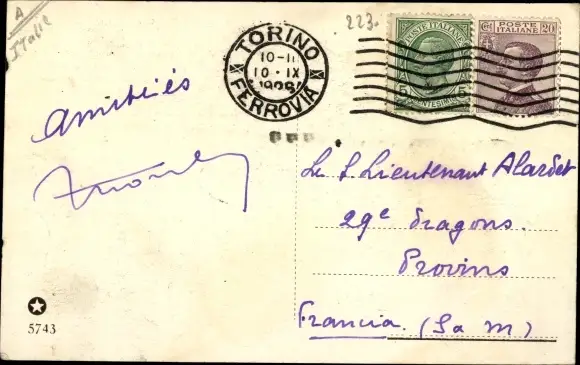 A
Italie
223.
TORINO
10-11
10·IX
1926
FERROVIA
POSTE ITALIANE
5 5
CENTESIMI
POSTE ITALIANE
Cent 20
Amitiés
Le S Lieutenant Alardet
29e Dragons.
Provins
Francia. (S a M)
5743